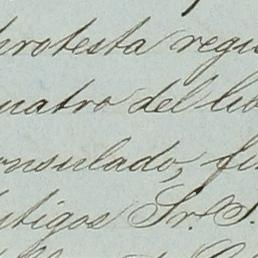 protesta regu
uatro del lib
onsulado, fir
stigos Sr. S.